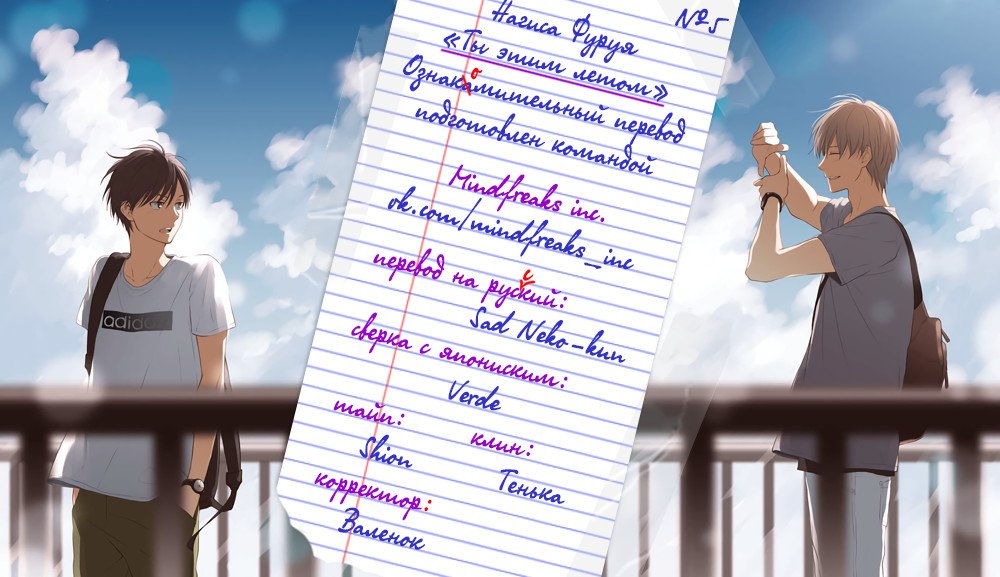 №5
Нагиса Фуруя
«Ты этим летом»
о
Ознакамительный перевод
подготовлен командой
Mindfreaks inc.
vk.com/mindfreaks_inc
с
перевод на руский:
Sad Neko-kun
сверка с японским:
Verde
тайп:
клин:
Shion
Тенька
корректор:
Валенок
adidas